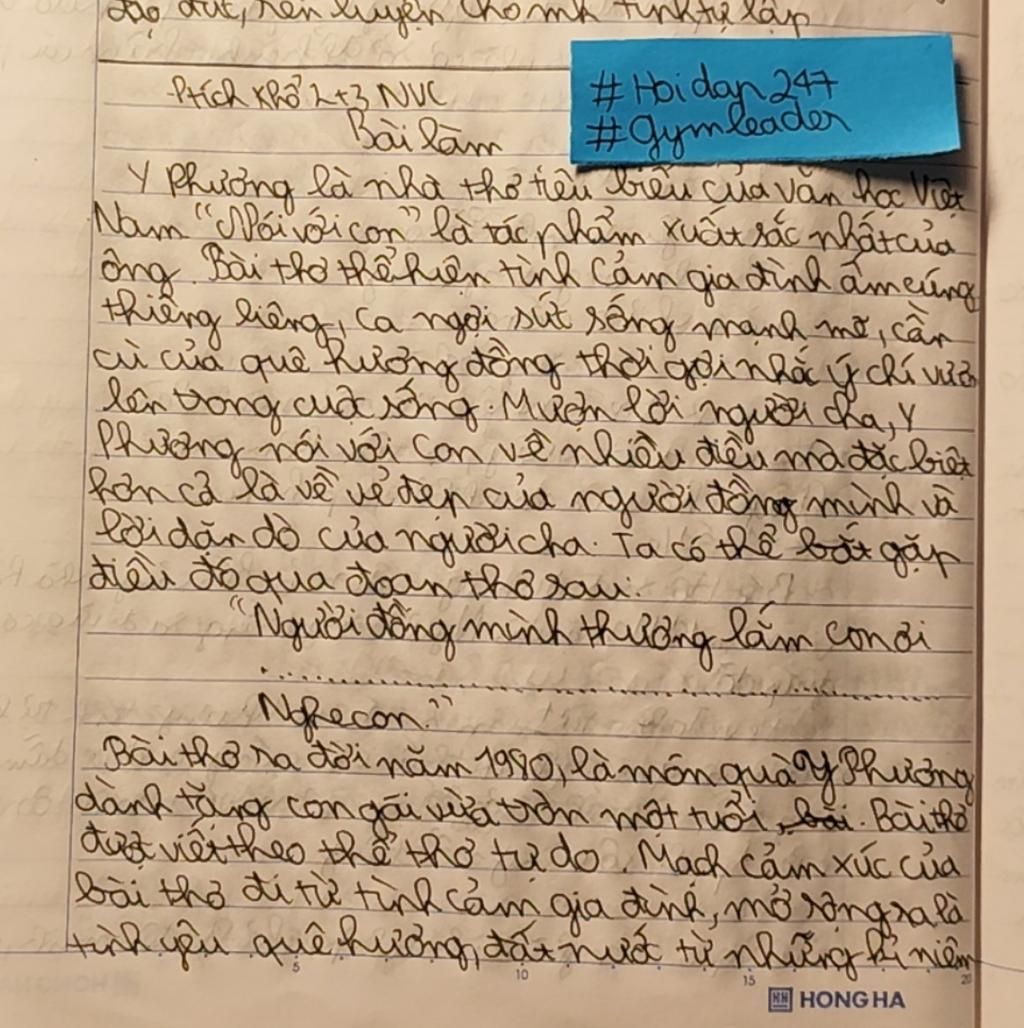 đạo đức, rèn luyện cho mk tính tự lập
Ptích khổ 2+3 NVC
#Hoidap247
#gymleader
Bài làm
Y Phương là nhà thơ tiêu biểu của văn học Việt
Nam "Nói với con" là tác phẩm xuất sắc nhất của
ông. Bài thơ thể hiện tình cảm gia đình ấm cúng
thiêng liêng, ca ngợi sức sống mạnh mẽ, cần
cù của quê hương đồng thời gợi nhắc ý chí vươn
lên trong cuộc sống. Mượn lời người cha, Y
Phương nói với con về nhiều điều mà đặc biệt
hơn cả là về vẻ đẹp của người đồng mình và
lời dặn dò của người cha. Ta có thể bắt gặp
điều đó qua đoạn thơ sau:
"Người đồng mình thương lắm con ơi
................................................
Nghe con."
Bài thơ ra đời năm 1980, là món quà Y Phương
dành tặng con gái vừa tròn một tuổi, bài. Bài thơ
được viết theo thể thơ tự do. Mạch cảm xúc của
bài thơ đi từ tình cảm gia đình, mở rộng ra là
tình yêu quê hương, đất nước từ những kỉ niệm
5 10 15 20
HH HONG HA